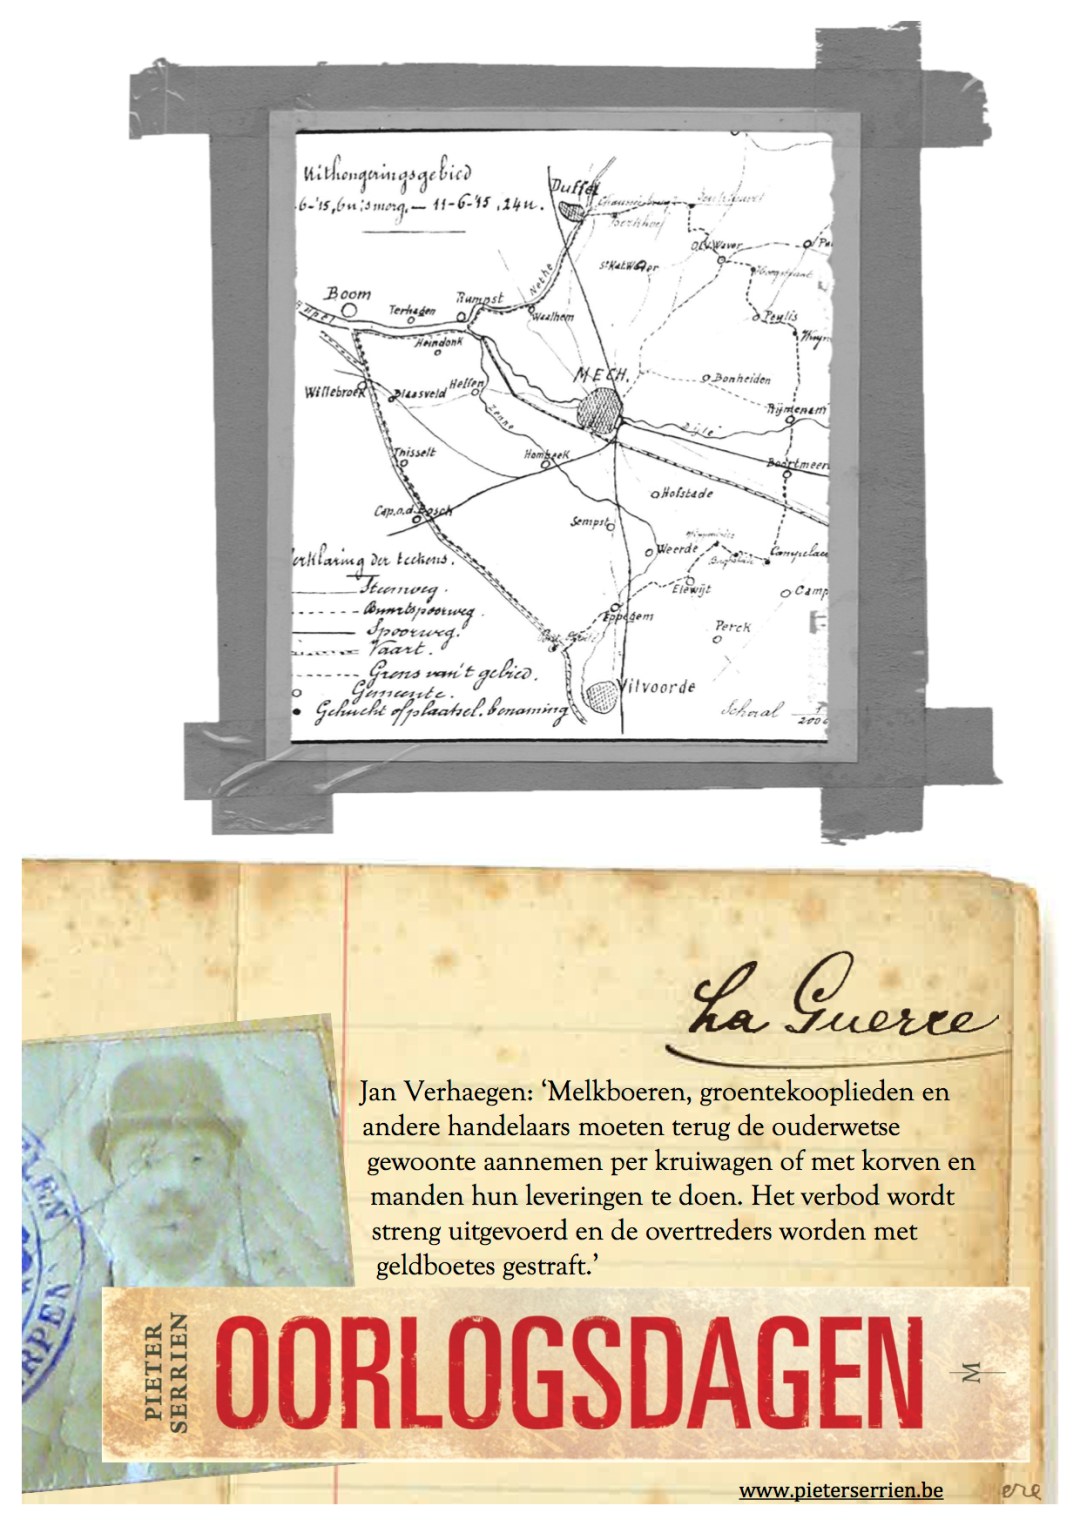 Uithongeringsgebied
6-'15, 6u's morg. — 11-6-'15, 24u.
Duffel
O.L.V. Waver
St Kat. Waver
Nethe
Boom
Terhagen
Rumpst
Waelhem
Heindonk
Peulis
MECH.
Bonheiden
Willebroek
Blaasveld
Heffen
Zenne
Rijmenam
Dijle
Thisselt
Hombeek
Boortmeer
Hofstade
Cap.o.d.Bosch
Sempst
Weerde
Elewijt
Camp
Eppegem
Perck
Vilvoorde
erklaring der teekens.
Steenweg.
Buurtspoorweg.
Spoorweg.
Vaart.
Grens van't gebied.
Gemeente.
Gehucht of plaatsel. benaming
Schaal
La Guerre
Jan Verhaegen: ‘Melkboeren, groentekooplieden en
andere handelaars moeten terug de ouderwetse
gewoonte aannemen per kruiwagen of met korven en
manden hun leveringen te doen. Het verbod wordt
streng uitgevoerd en de overtreders worden met
geldboetes gestraft.’
PIETER
SERRIEN
OORLOGSDAGEN
M
www.pieterserrien.be